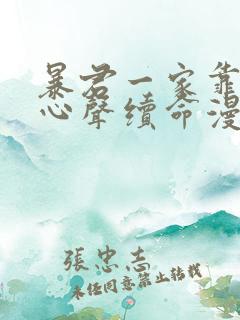 暴君一家靠
心聲續命漫
張忠志
未经同意禁止转载